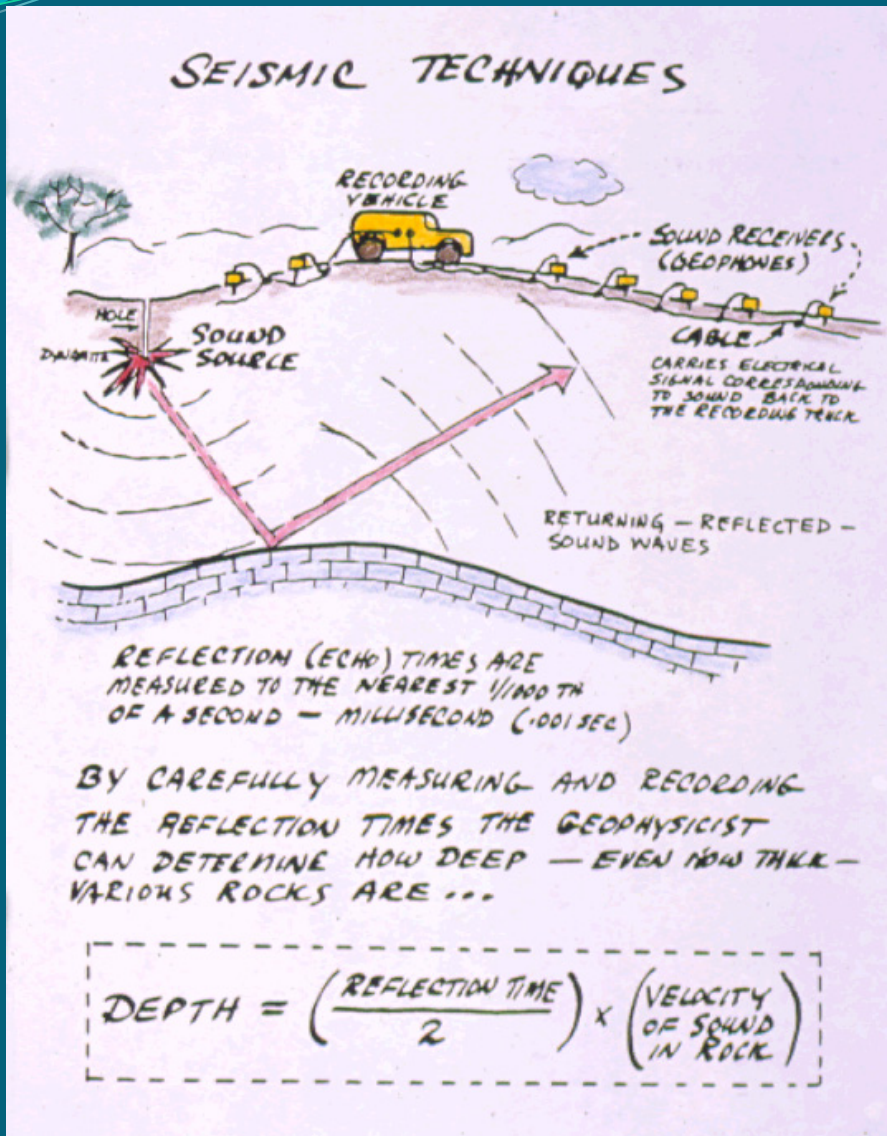 SEISMIC TECHNIQUES
RECORDING
VEHICLE
SOUND RECEIVERS
(GEOPHONES)
HOLE
DYNAMITE
SOUND
SOURCE
CABLE
CARRIES ELECTRICAL
SIGNAL CORRESPONDING
TO SOUND BACK TO
THE RECORDING TRUCK
RETURNING – REFLECTED –
SOUND WAVES
REFLECTION (ECHO) TIMES ARE
MEASURED TO THE NEAREST 1/1000 TH
OF A SECOND – MILLISECOND (.001 SEC)
BY CAREFULLY MEASURING AND RECORDING
THE REFLECTION TIMES THE GEOPHYSICIST
CAN DETERMINE HOW DEEP – EVEN HOW THICK –
VARIOUS ROCKS ARE ...
DEPTH = (REFLECTION TIME / 2) x (VELOCITY
OF SOUND
IN ROCK)